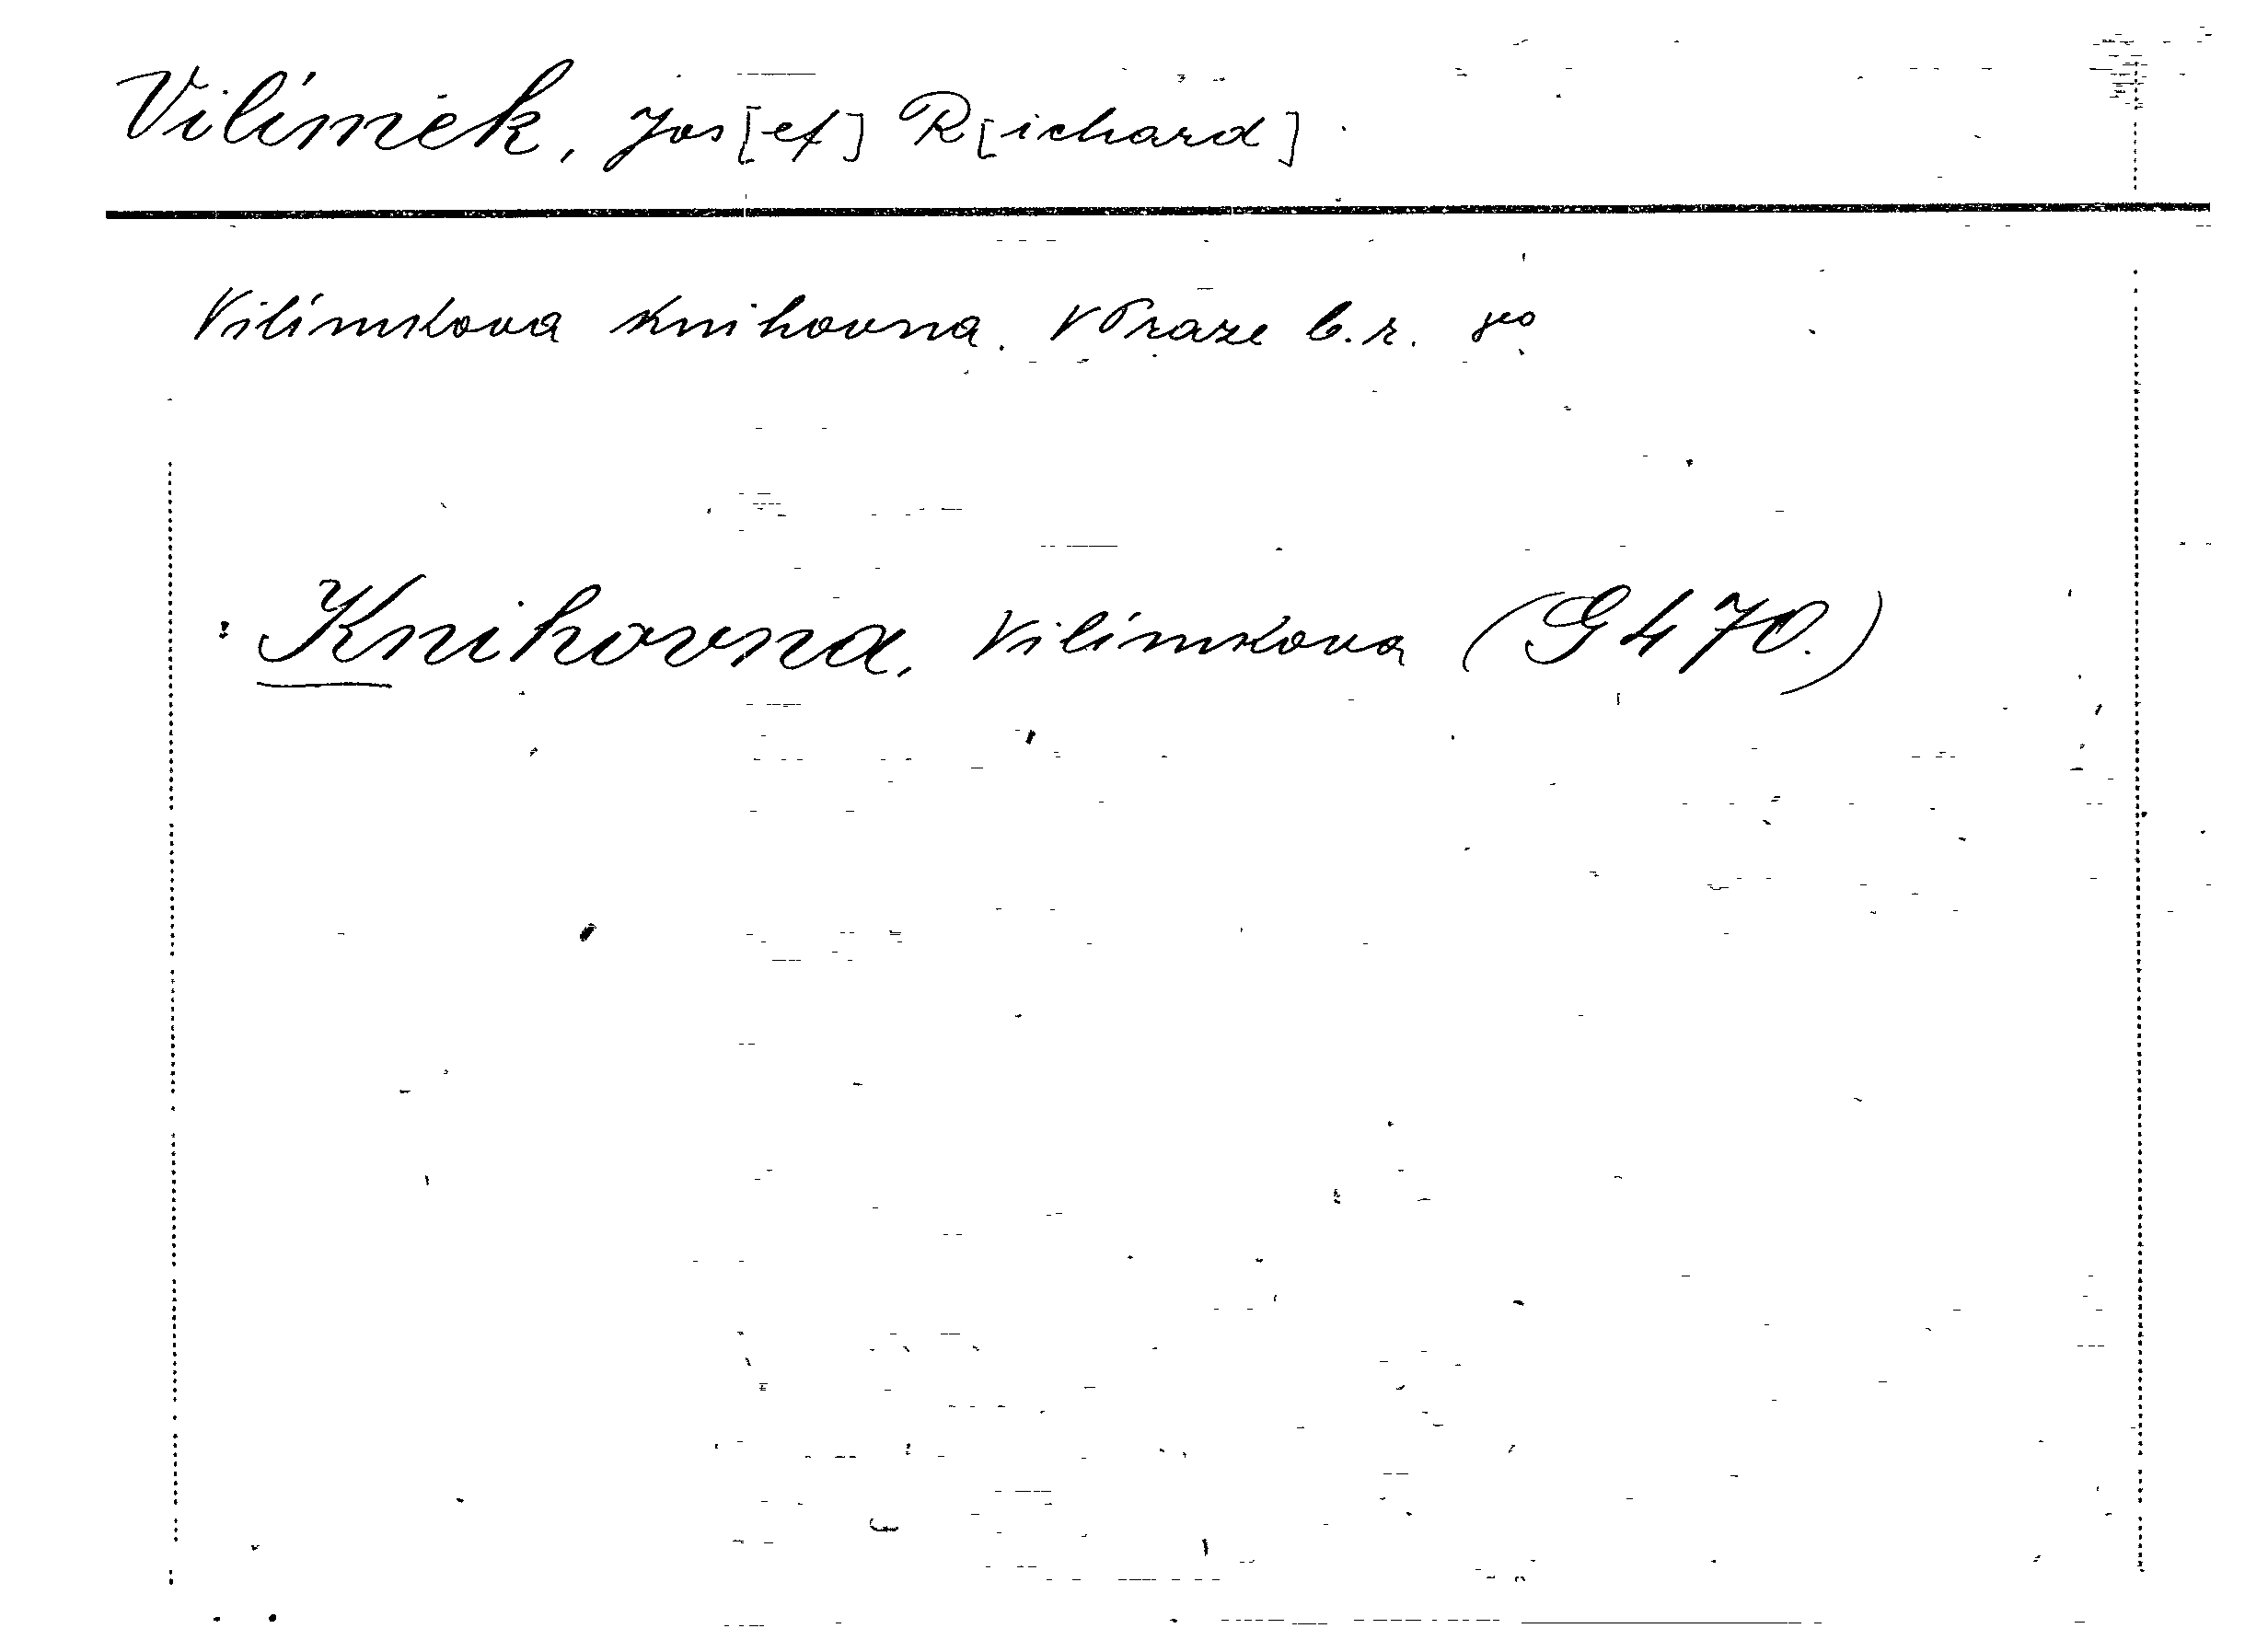 Vilímek, Jos[ef] R[ichard]
Vilímkova knihovna. V Praze b.r. 8°
: Knihovna, Vilímkova (G 470.)